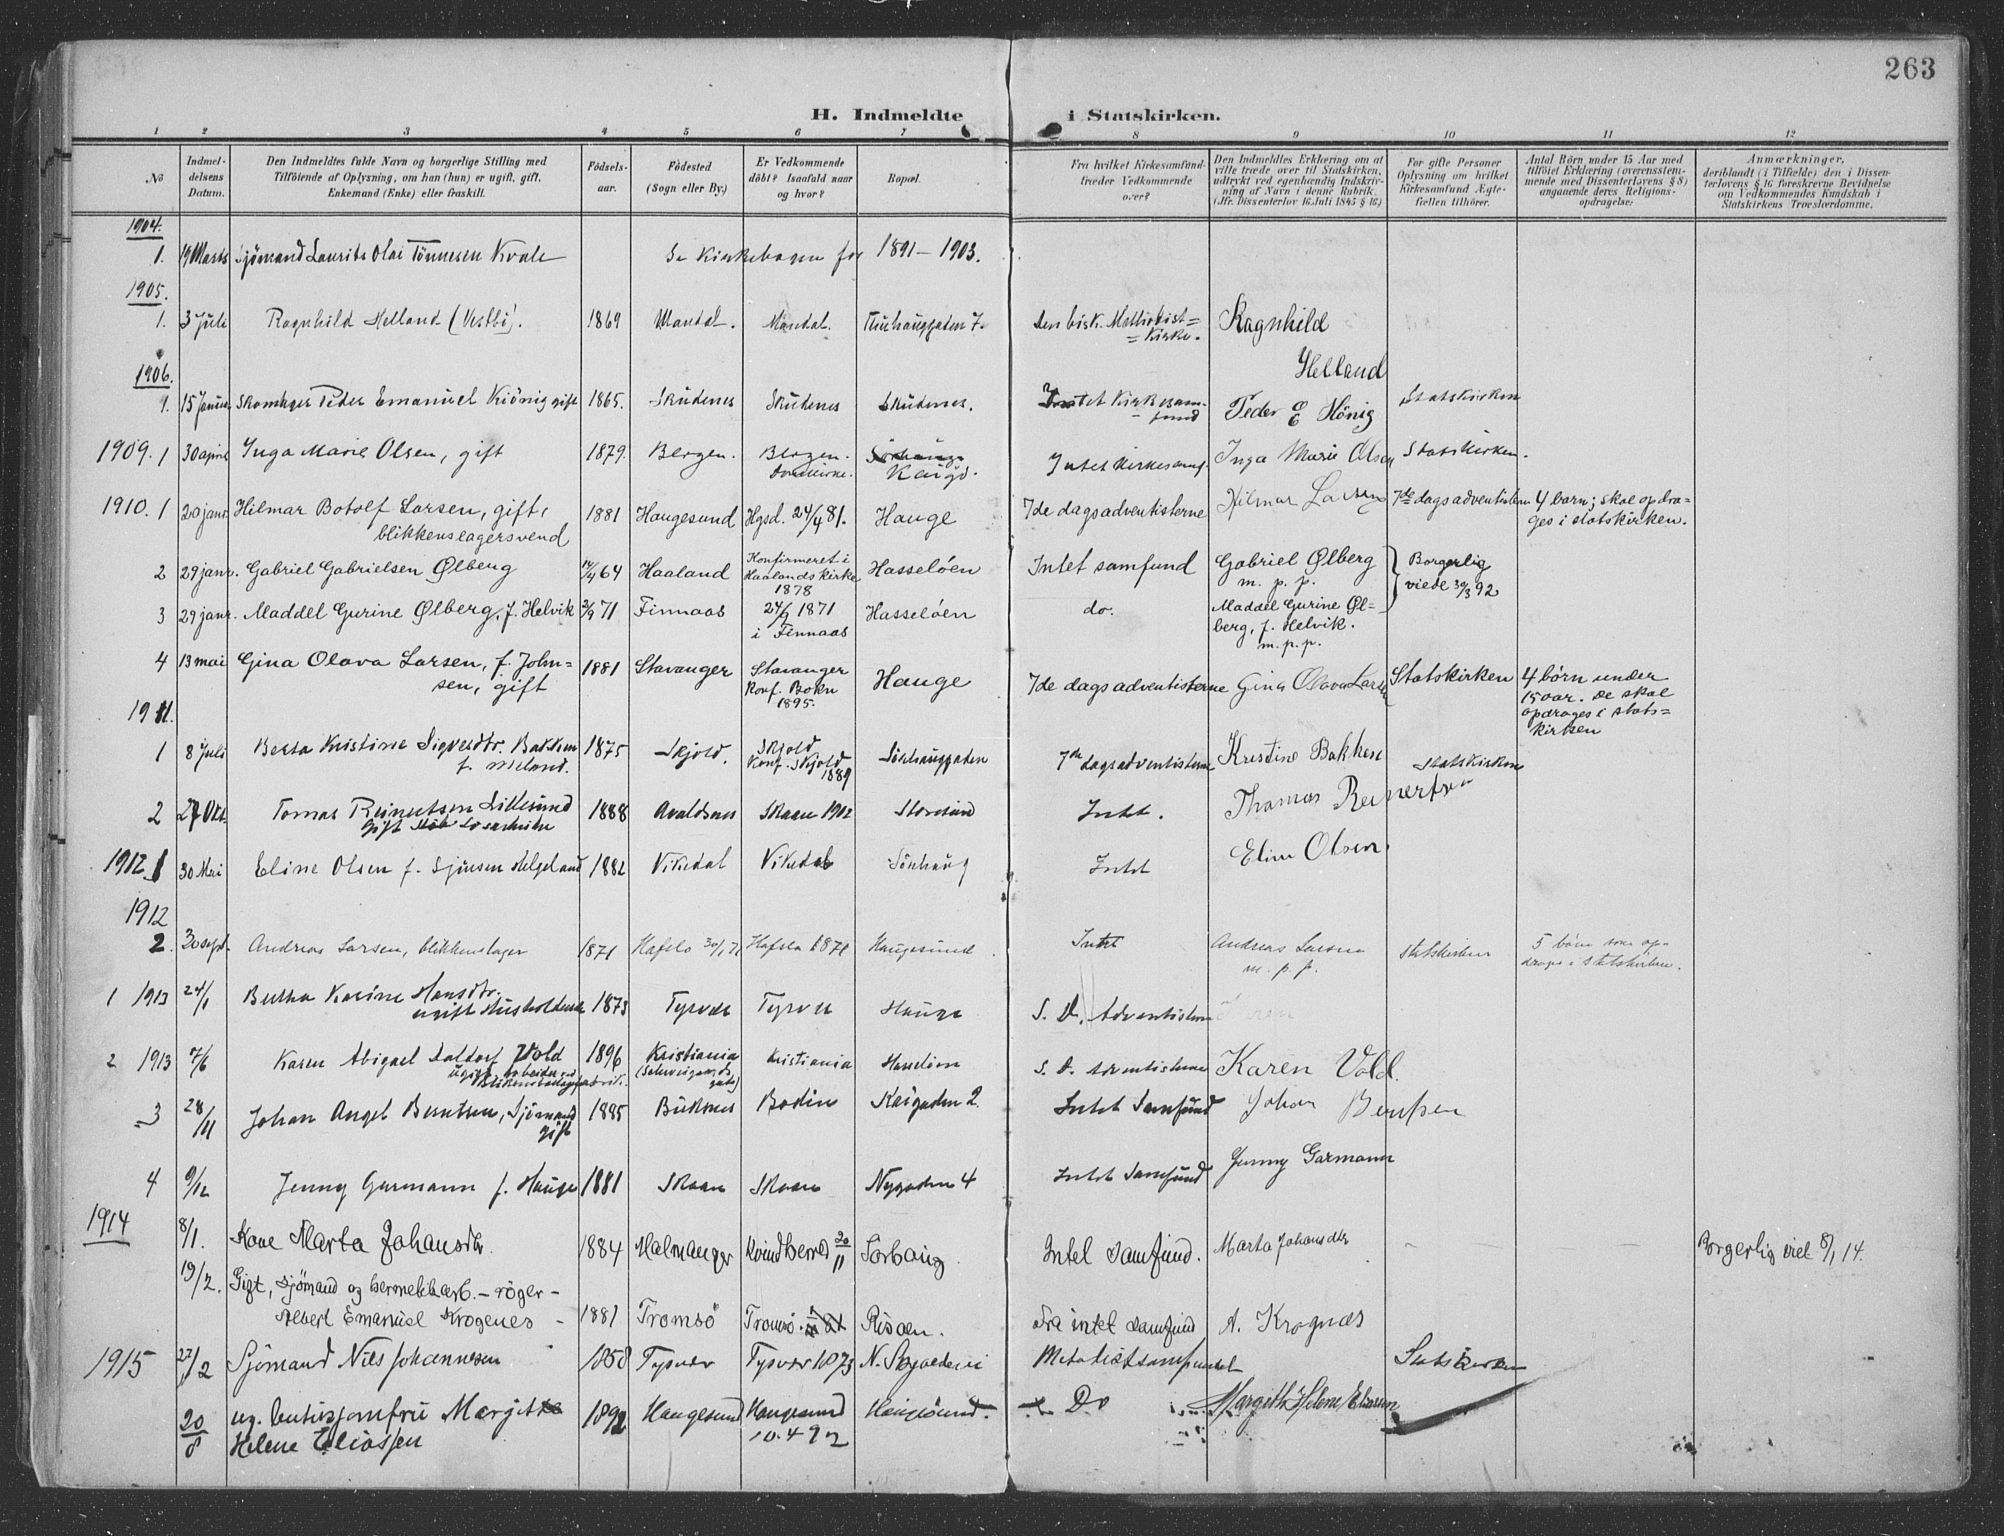 263
H. Indmeldte i Statskirken.
1 2 3 4 5 6 7 8 9 10 11 12
No
Indmeldelsens Datum.
Den Indmeldtes fulde Navn og borgerlige Stilling med
Tilföiende af Oplysning, om han (hun) er ugift, gift,
Enkemand (Enke) eller fraskill.
Födselsaar.
Födested
(Sogn eller By.)
Er Vedkommende
döbt? Isaafald naar
og hvor?
Bopæl.
Fra hvilket Kirkesamfund
træder Vedkommende
over?
Den Indmeldtes Erklæring om at
ville træde over til Statskirken,
udtrykt ved egenhændig Indskrivning af Navn i denne Rubrik.
(Jfr. Dissenterlov 16 Juli 1845 § 16.)
For gifte Personer
Oplysning om hvilket
Kirkesamfund Ægtefællen tilhörer.
Antal Börn under 15 Aar med
tilföiet Erklæring (overensstemmende med Dissenterlovens § 8)
angaaende deres Religionsopdragelse:
Anmærkninger,
deriblandt (i Tilfælde) den i Dissenterlovens § 16 foreskrevne Bevidnelse
om Vedkommendes Kundskab i
Statskirkens Troeslærdomme.
1904.
1. 19 Marts Sjømand Laurits Olai Tönnesen Kvale Se Kirkebogen for 1891–1903.
1905.
1. 3 Juli Ragnhild Helland (Vestbö). 1869 Mandal. Mandal. Den bisk. Methodist=
=Kirke. Ragnhild
Helland
1906.
1. 15 Januar Skomager Peder Emanuel gift 1865. Skudenes Skudenes Skudenes. Intet Kirkesam-
fund Peder E Hönig Statskirken
1909. 1 30 april Inga Marie Olsen, gift 1879. Bergen. Bergen.
Domkirke. Intet Kirkesamf. Inga Marie Olsen Statskirken.
1910. 1 20 janr. Hilmar Botolf Larsen, gift,
blikkenslagersvend 1881 Haugesund Hgsd. 24/4 81. Hauge 7de dags adventisterne Hilmar Larsen 7de dags adventisterne 4 barn; skal opdra=
ges i statskirken.
2 29 janr. Gabriel Gabrielsen Ølberg 64 Haaland Konfirmeret i
Haalands kirke
1878 Hasseløen Intet samfund Gabriel Ølberg
m. p. p. Borgerlig
viede 30/3 92
3 29 janr. Maddel Gurine Ølberg, f. Helvik 71 Finnaas 1871
i Finnaas Hasseløen do. Maddel Gurine Øl=
berg, f. Helvik.
m. p. p.
4 13 mai Gina Olava Larsen, f. John=
sen, gift 1881 Stavanger Stavanger
Konf. Bokn
1895. Hauge 7de dags adventisterne Gina Olava Larsen Statskirken 4 børn under
15 aar. de skal
opdrages i stats=
kirken
1911.
1 8 Juli Berta Kristine Sigverdtr. Bakken
f. 1875 Skjold. Skjold
Konf. Skjold
1889 Sörhauggaden 7de dags adventisterne Kristine Bakken Statskirken
2 27 Okt. Tomas Reinertsen Lillesund
gift 1888 Avaldsnes Skaare 1902 Storesund Intet. Thomas Reinertsen
1912 1 30 Mai Eline Olsen f. Helgeland 1882 Vikedal Vikedal Sörhaug Intet Eline Olsen.
1912
2. 30 sept. Andreas Larsen, blikkenslager 1871 Hafslo Hafslo 1871 Haugesund. Intet Andreas Larsen
m. p. p. statskirken 5 börn som op-
drages i statskirken.
1 1913 24/1 Bertha Karine Hansdtr.
ugift Husholderske 1873 Tysvær Tysvær Hauge S. D. Adventisterne
2 1913 7/6 Karen Abigael Vold
ugift 1896 Kristiania Kristiania Hasselöen S. D. Adventisterne Karen Vold.
3 28/11 Johan Angel Berntsen, Sjömand
gift 1885 Bodin Kaigaden 2. Intet Samfund Johan Berntsen
4 9/12 Jenny Garmann f. Hauge 1881 Skaare Skaare Nygaden 4 Intet Samfund Jenny Garmann
1914 8/1. Kone Marta Johansdtr. 1884 Malmanger Kvindherred 20/11 Sörhaug. Intet Samfund. Marta Johansdtr – – Borgerlig viet 8/1 14.
19/2. Gift, sjömand og hermetikkarb. – röger –
Albert Emanuel Krogenes – 1881 Tromsö Tromsö. Risöen. Fra intet samfund A. Krognæs
1915 27/2 Sjömand Nils Johannesen 1858 Tysvær Tysvær 1873 Metodistsamfundet Statskirken
20/8 ug. butikjomfru Margit
Helene Eliassen 1892 Haugesund Haugesund
10.4 92 Haugesund. Do Margith Helene Eliassen